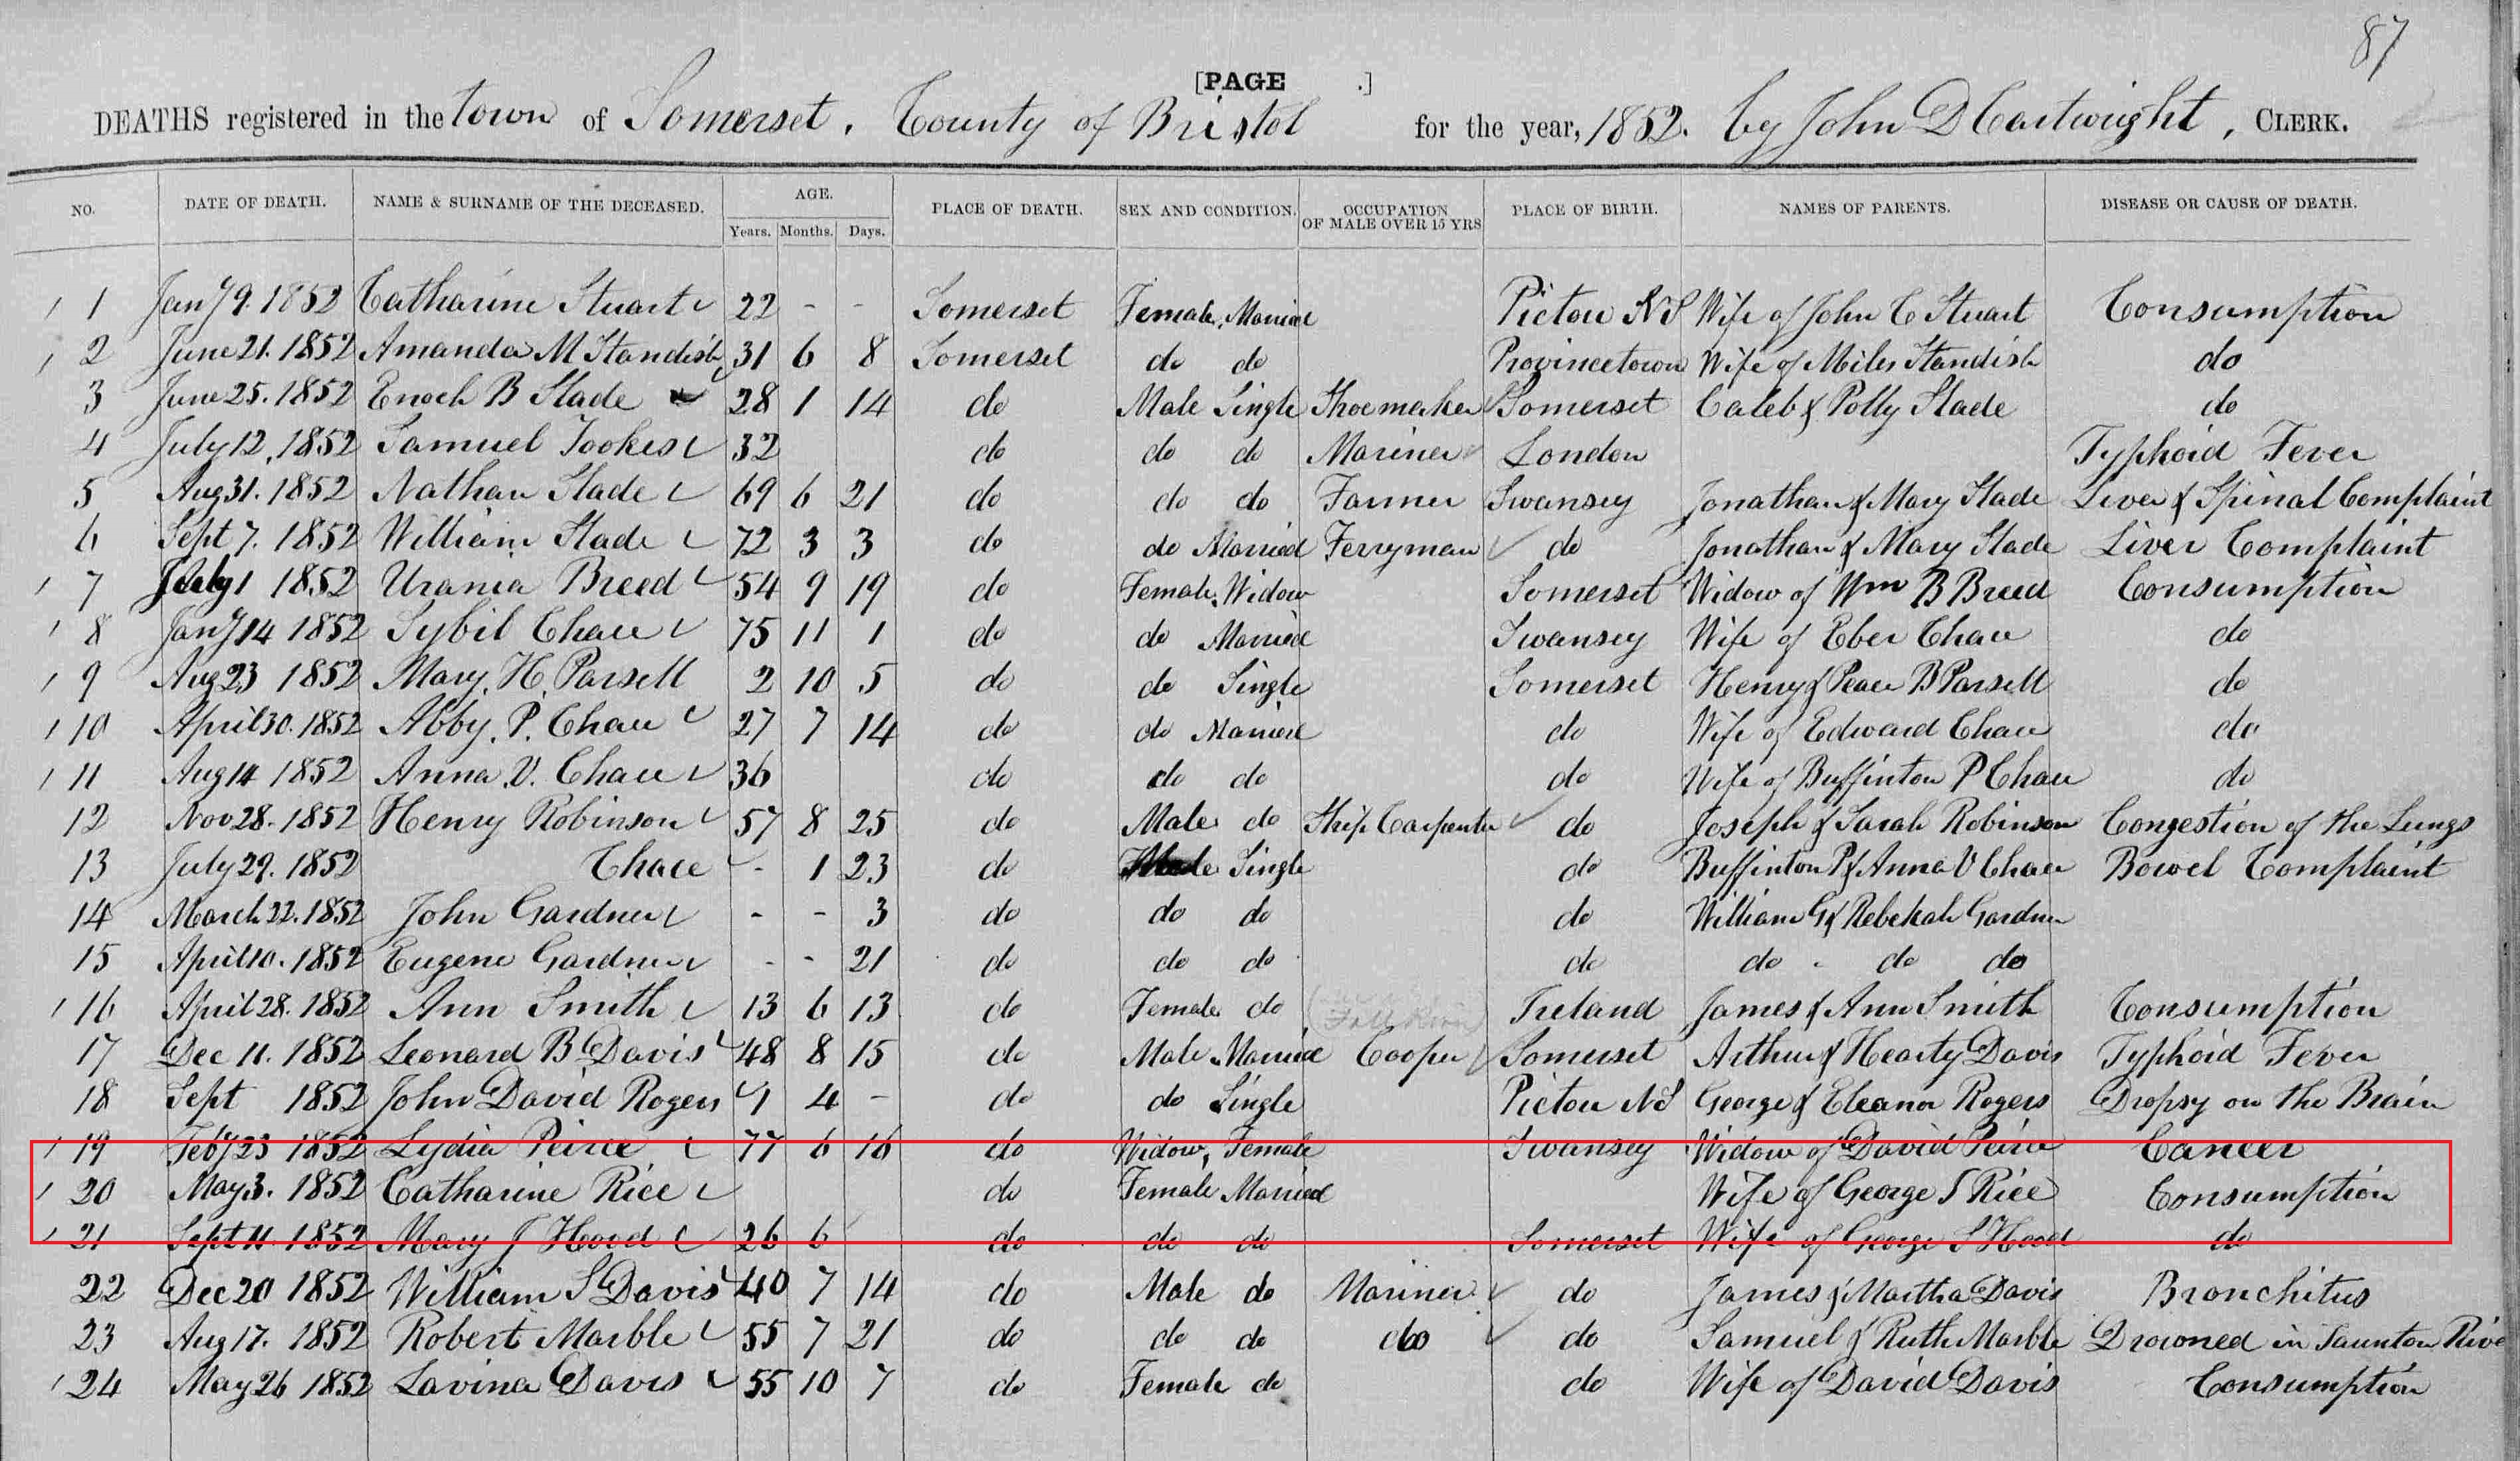 87
[PAGE .]
DEATHS registered in the town of Somerset, County of Bristol for the year, 1852. by John D Cartwright, CLERK.
NO. DATE OF DEATH. NAME & SURNAME OF THE DECEASED. AGE. Years. Months. Days. PLACE OF DEATH. SEX AND CONDITION. OCCUPATION OF MALE OVER 15 YRS PLACE OF BIRTH. NAMES OF PARENTS. DISEASE OR CAUSE OF DEATH.
1 Jany 9. 1852 Catharine Stuart 22 - - Somerset Female, Married Pictou NS Wife of John C Stuart Consumption
2 June 21. 1852 Amanda M Standish 31 6 8 Somerset do do Provincetown Wife of Miles Standish do
3 June 25. 1852 Enoch B Slade 28 1 14 do Male Single Shoemaker Somerset Caleb & Polly Slade do
4 July 12, 1852 Samuel Tookes 32 do do do Mariner London Typhoid Fever
5 Aug 31. 1852 Nathan Slade 69 6 21 do do do Farmer Swansey Jonathan & Mary Slade Liver & Spinal Complaint
6 Sept 7. 1852 William Slade 72 3 3 do do Married Ferryman do Jonathan & Mary Slade Liver Complaint
7 July 1 1852 Urania Breed 54 9 19 do Female, Widow Somerset Widow of Wm B Breed Consumption
8 Jany 14 1852 Sybil Chace 75 11 1 do do Married Swansey Wife of Eber Chace do
9 Aug 23 1852 Mary. H. Parsell 2 10 5 do do Single Somerset Henry & Peace B Parsell do
10 April 30. 1852 Abby. P. Chace 27 7 14 do do Married do Wife of Edward Chace do
11 Aug 14 1852 Anna. V. Chace 36 do do do do Wife of Buffinton P Chace do
12 Nov 28. 1852 Henry Robinson 57 8 25 do Male do Ship Carpenter do Joseph & Sarah Robinson Congestion of the Lungs
13 July 29. 1852 Chace - 1 23 do Male Single do Buffinton P & Anna V Chace Bowel Complaint
14 March 22. 1852 John Gardner - - 3 do do do do William G & Rebekah Gardner
15 April 10. 1852 Eugene Gardner - - 21 do do do do do do do
16 April 28. 1852 Ann Smith 13 6 13 do Female do (Fall River) Ireland James & Ann Smith Consumption
17 Dec 11. 1852 Leonard B Davis 48 8 15 do Male Married Cooper Somerset Arthur & Hearty Davis Typhoid Fever
18 Sept 1852 John David Rogers 1 4 - do do Single Pictou NS George & Eleanor Rogers Dropsy on the Brain
19 Feby 23 1852 Lydia Peirce 77 6 16 do Widow, Female Swansey Widow of David Peirce Cancer
20 May 3. 1852 Catharine Rice do Female Married Wife of George S Rice Consumption
21 Sept 11. 1852 Mary J Hood 26 6 do do do Somerset Wife of George S Hood do
22 Dec 20 1852 William S Davis 40 7 14 do Male do Mariner do James & Martha Davis Bronchitus
23 Aug 17. 1852 Robert Marble 55 7 21 do do do do do Samuel & Ruth Marble Drowned in Taunton Rive
24 May 26 1852 Lavina Davis 55 10 7 do Female do do Wife of David Davis Consumption